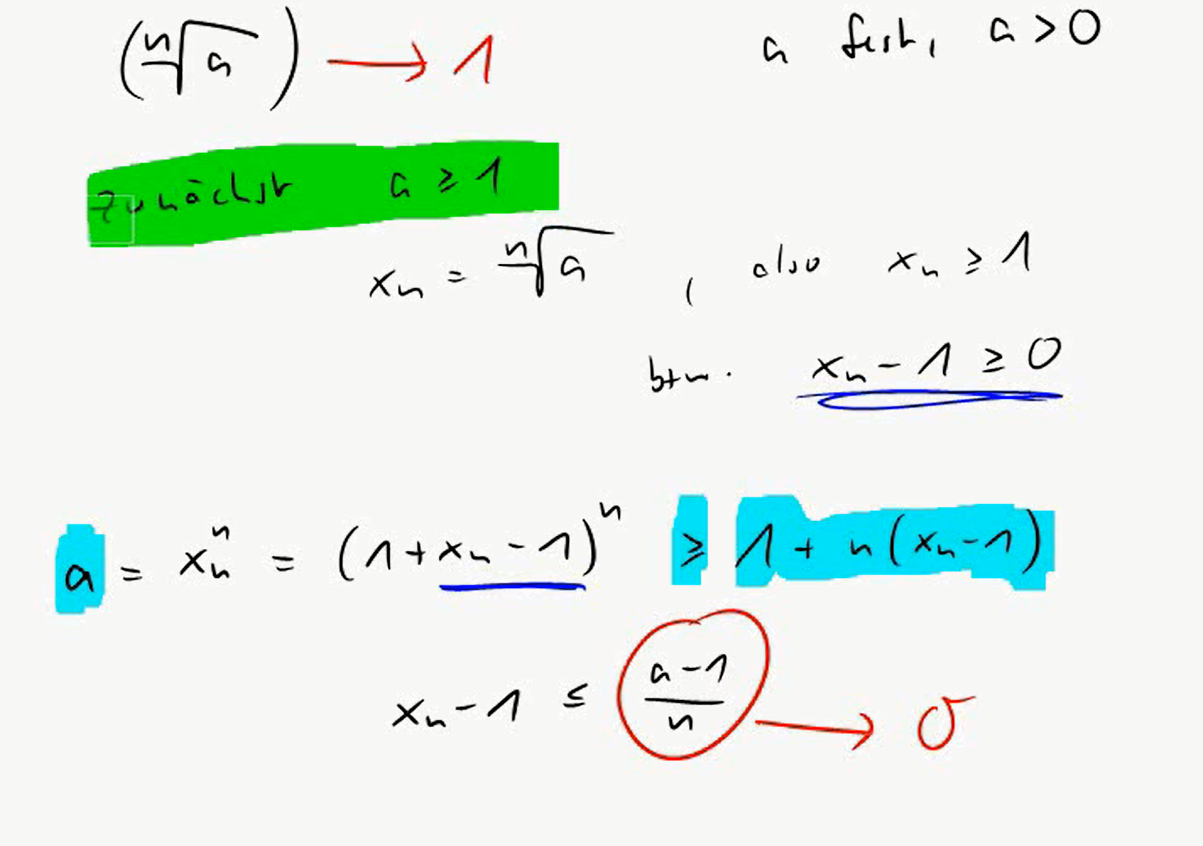 (ⁿ√a) → 1 a fest, a > 0
Zunächst a ≥ 1
xₙ = ⁿ√a , also xₙ ≥ 1
bzw. xₙ - 1 ≥ 0
a = xₙⁿ = (1 + xₙ - 1)ⁿ ≥ 1 + n(xₙ - 1)
xₙ - 1 ≤ (a - 1)/n → 0